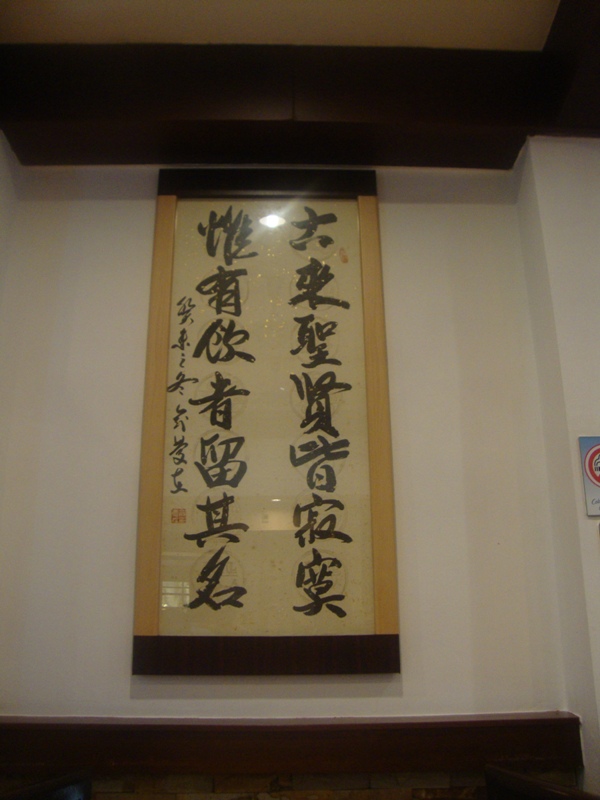 古来聖賢皆寂寞
惟有飲者留其名
癸未之冬